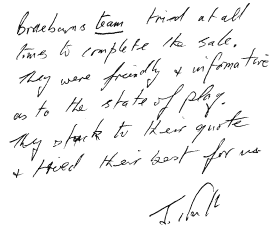 Braeburns team tried at all
times to complete the sale.
They were friendly & informative
as to the state of play.
They stuck to their quote
& tried their best for us